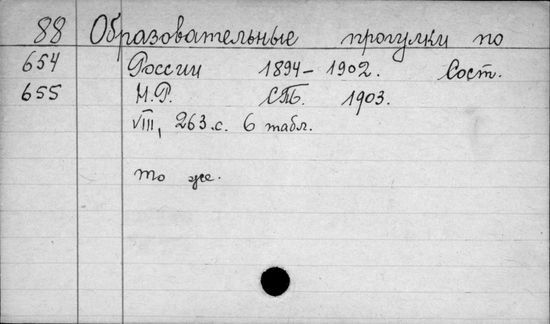 88 Образовательные прогулки по
654 России 1894–1902. Сост.
655 М.Р. СПБ. 1903.
VIII, 263 с. 6 табл.
то же.